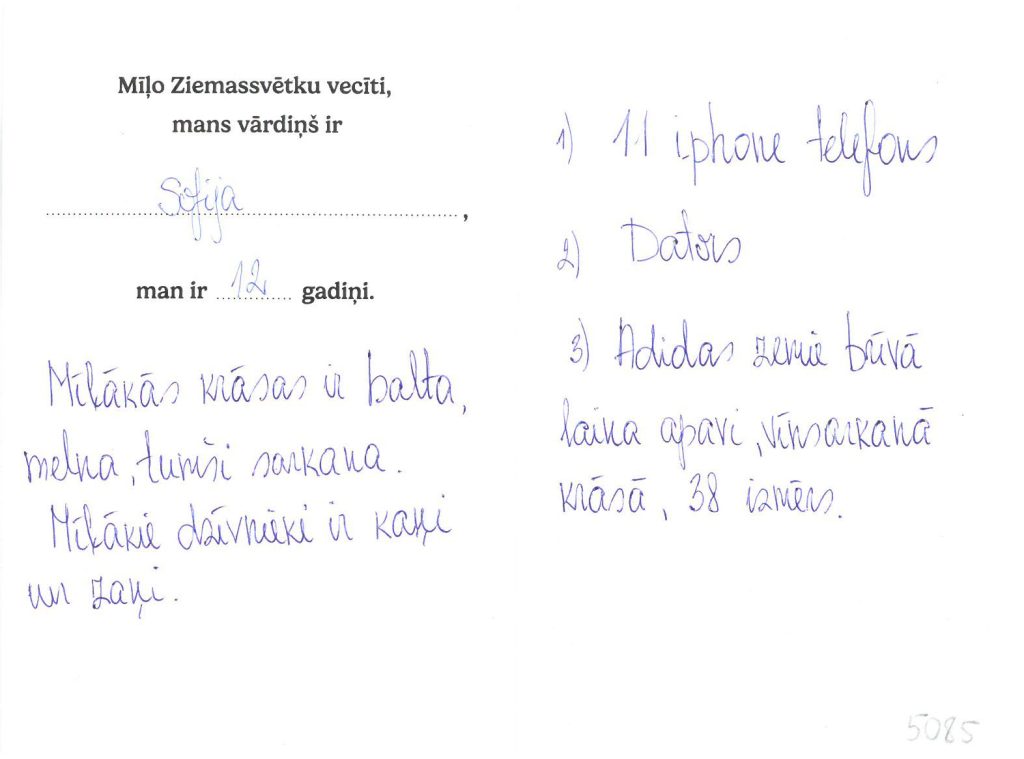 Mīļo Ziemassvētku vecīti,
mans vārdiņš ir
Sofija,
man ir 12 gadiņi.
Mīļākās krāsas ir balta,
melna, tumši sarkana.
Mīļākie dzīvnieki ir kaņi
un zaņi.
1) 11 iphone telefons
2) Dators
3) Adidas zemie būvā
laina apavi, vīnsarkanā
krāsā, 38 izmērs.
5085